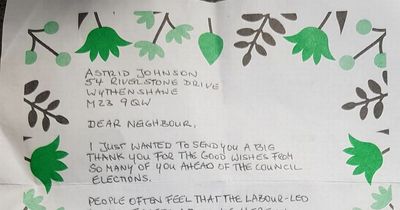 ASTRID JOHNSON
54 RIVERSTONE DRIVE
WYTHENSHAWE
M23 9QW
DEAR NEIGHBOUR,
I JUST WANTED TO SEND YOU A BIG
THANK YOU FOR THE GOOD WISHES FROM
SO MANY OF YOU AHEAD OF THE COUNCIL
ELECTIONS.
PEOPLE OFTEN FEEL THAT THE LABOUR-LED